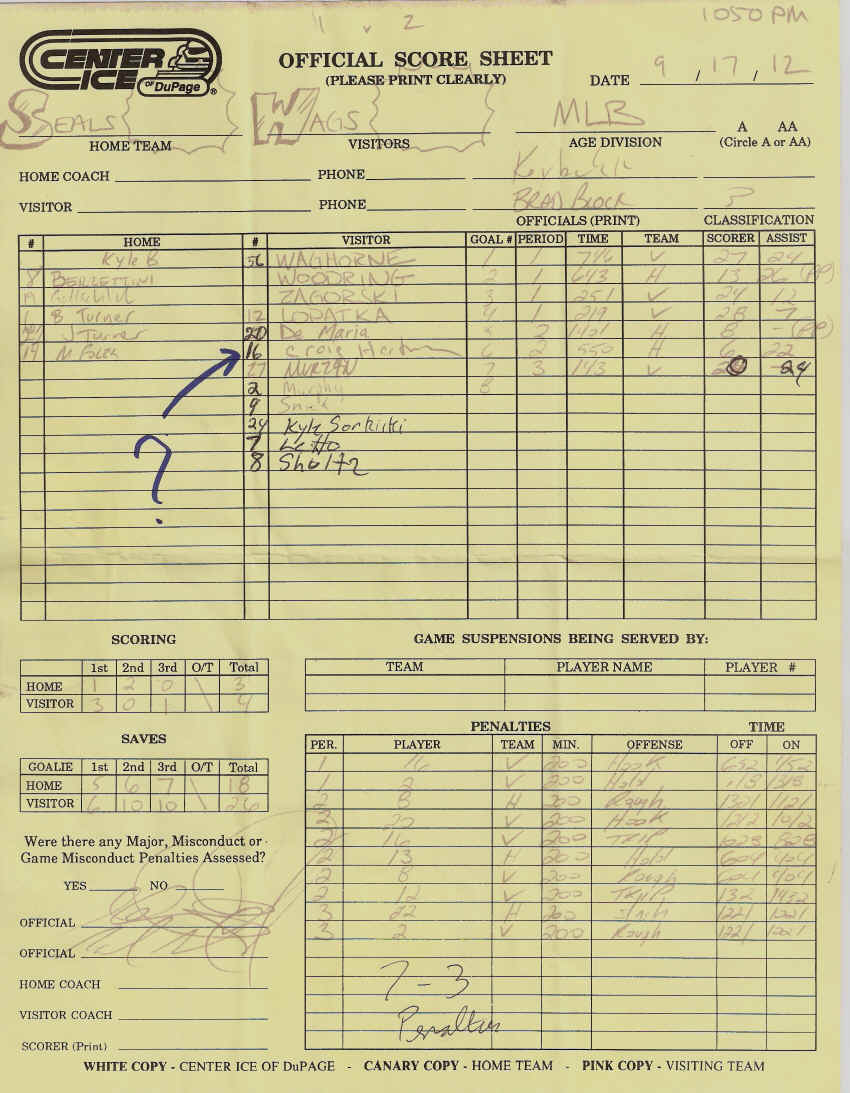 1 v 2
1050 PM
CENTER ICE OF DuPAGE ®
OFFICIAL SCORE SHEET
(PLEASE PRINT CLEARLY)
DATE 9 / 17 / 12
SEALS WAGS MLB
HOME TEAM VISITORS AGE DIVISION A AA
(Circle A or AA)
HOME COACH PHONE
VISITOR PHONE BRAD BLOCK 3
OFFICIALS (PRINT) CLASSIFICATION
# HOME # VISITOR GOAL # PERIOD TIME TEAM SCORER ASSIST
Kyle B 56 WAGHORNE 1 1 746 V 27 24
8 BERLETTINI WOODRING 2 1 643 H 13 26 (PP)
19 ZAGORSKI 3 1 251 V 24 12
1 B Turner 12 LOPATKA 4 1 219 V 28 7
J Turner 20 De Maria 5 2 1421 H 8 - (PP)
19 M Folek 16 Craig Hartman 6 2 550 H 6 22
27 MURZYN 7 3 143 V 20 24
2 Murphy 8
9
24 Kyle Sorkicki
7 Letto
8 Shultz
?
SCORING
1st 2nd 3rd O/T Total
HOME 1 2 0 \ 3
VISITOR 3 0 1 \ 4
GAME SUSPENSIONS BEING SERVED BY:
TEAM PLAYER NAME PLAYER #
SAVES
GOALIE 1st 2nd 3rd O/T Total
HOME 5 6 7 \ 18
VISITOR 6 10 10 \ 26
PENALTIES TIME
PER. PLAYER TEAM MIN. OFFENSE OFF ON
1 16 V 200 Hook 652 452
1 2 V 200 Hold 318
2 8 H 200 Rough 1321 1121
2 20 V 200 Hook 1212 1012
2 16 V 200 TRIP 1028 828
2 13 H 200 Hold 604 404
2 8 V 200 Rough 604 404 !
2 12 V 200 TRIP 132 1432
3 22 H 200 1221 1021
3 2 V 200 Rough 1221 1021
7 - 3
Penalties
Were there any Major, Misconduct or
Game Misconduct Penalties Assessed?
YES NO
OFFICIAL
OFFICIAL
HOME COACH
VISITOR COACH
SCORER (Print)
WHITE COPY - CENTER ICE OF DuPAGE - CANARY COPY - HOME TEAM - PINK COPY - VISITING TEAM